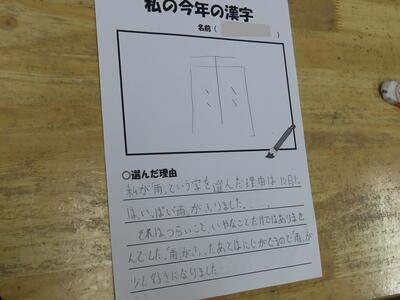 私の今年の漢字
名前（　　　）
雨
○選んだ理由
私が「雨」という字を選んだ理由は12月に
は、いっぱい雨がふりました。
それは、つらいこと、いやなことだけではありませ
んでした。「雨」がふったあとはにじがでるので「雨」が
少し好きになりました